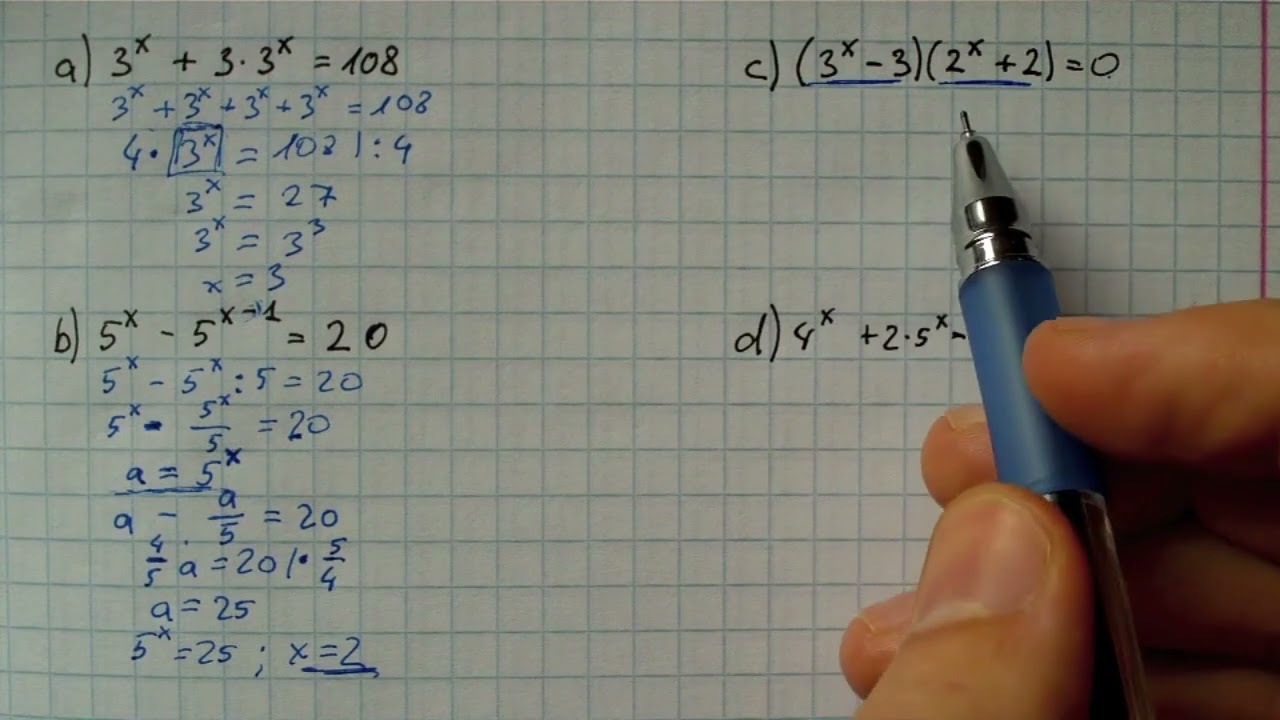 a) 3^x + 3·3^x = 108
3^x + 3^x + 3^x + 3^x = 108
4·3^x = 108 | : 4
3^x = 27
3^x = 3^3
x = 3
b) 5^x - 5^{x-1} = 20
5^x - 5^x : 5 = 20
5^x - \frac{5^x}{5} = 20
a = 5^x
a - \frac{a}{5} = 20
\frac{4}{5} a = 20 | · \frac{5}{4}
a = 25
5^x = 25 ; x = 2
c) (3^x - 3)(2^x + 2) = 0
d) 4^x + 2·5^x -